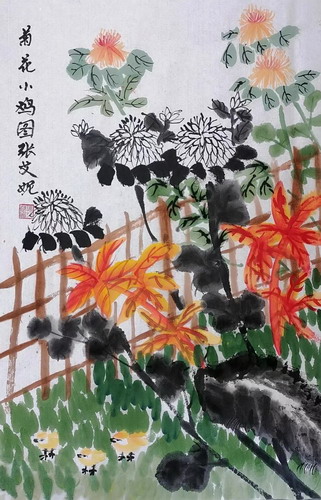 菊花小鸡图张文妮